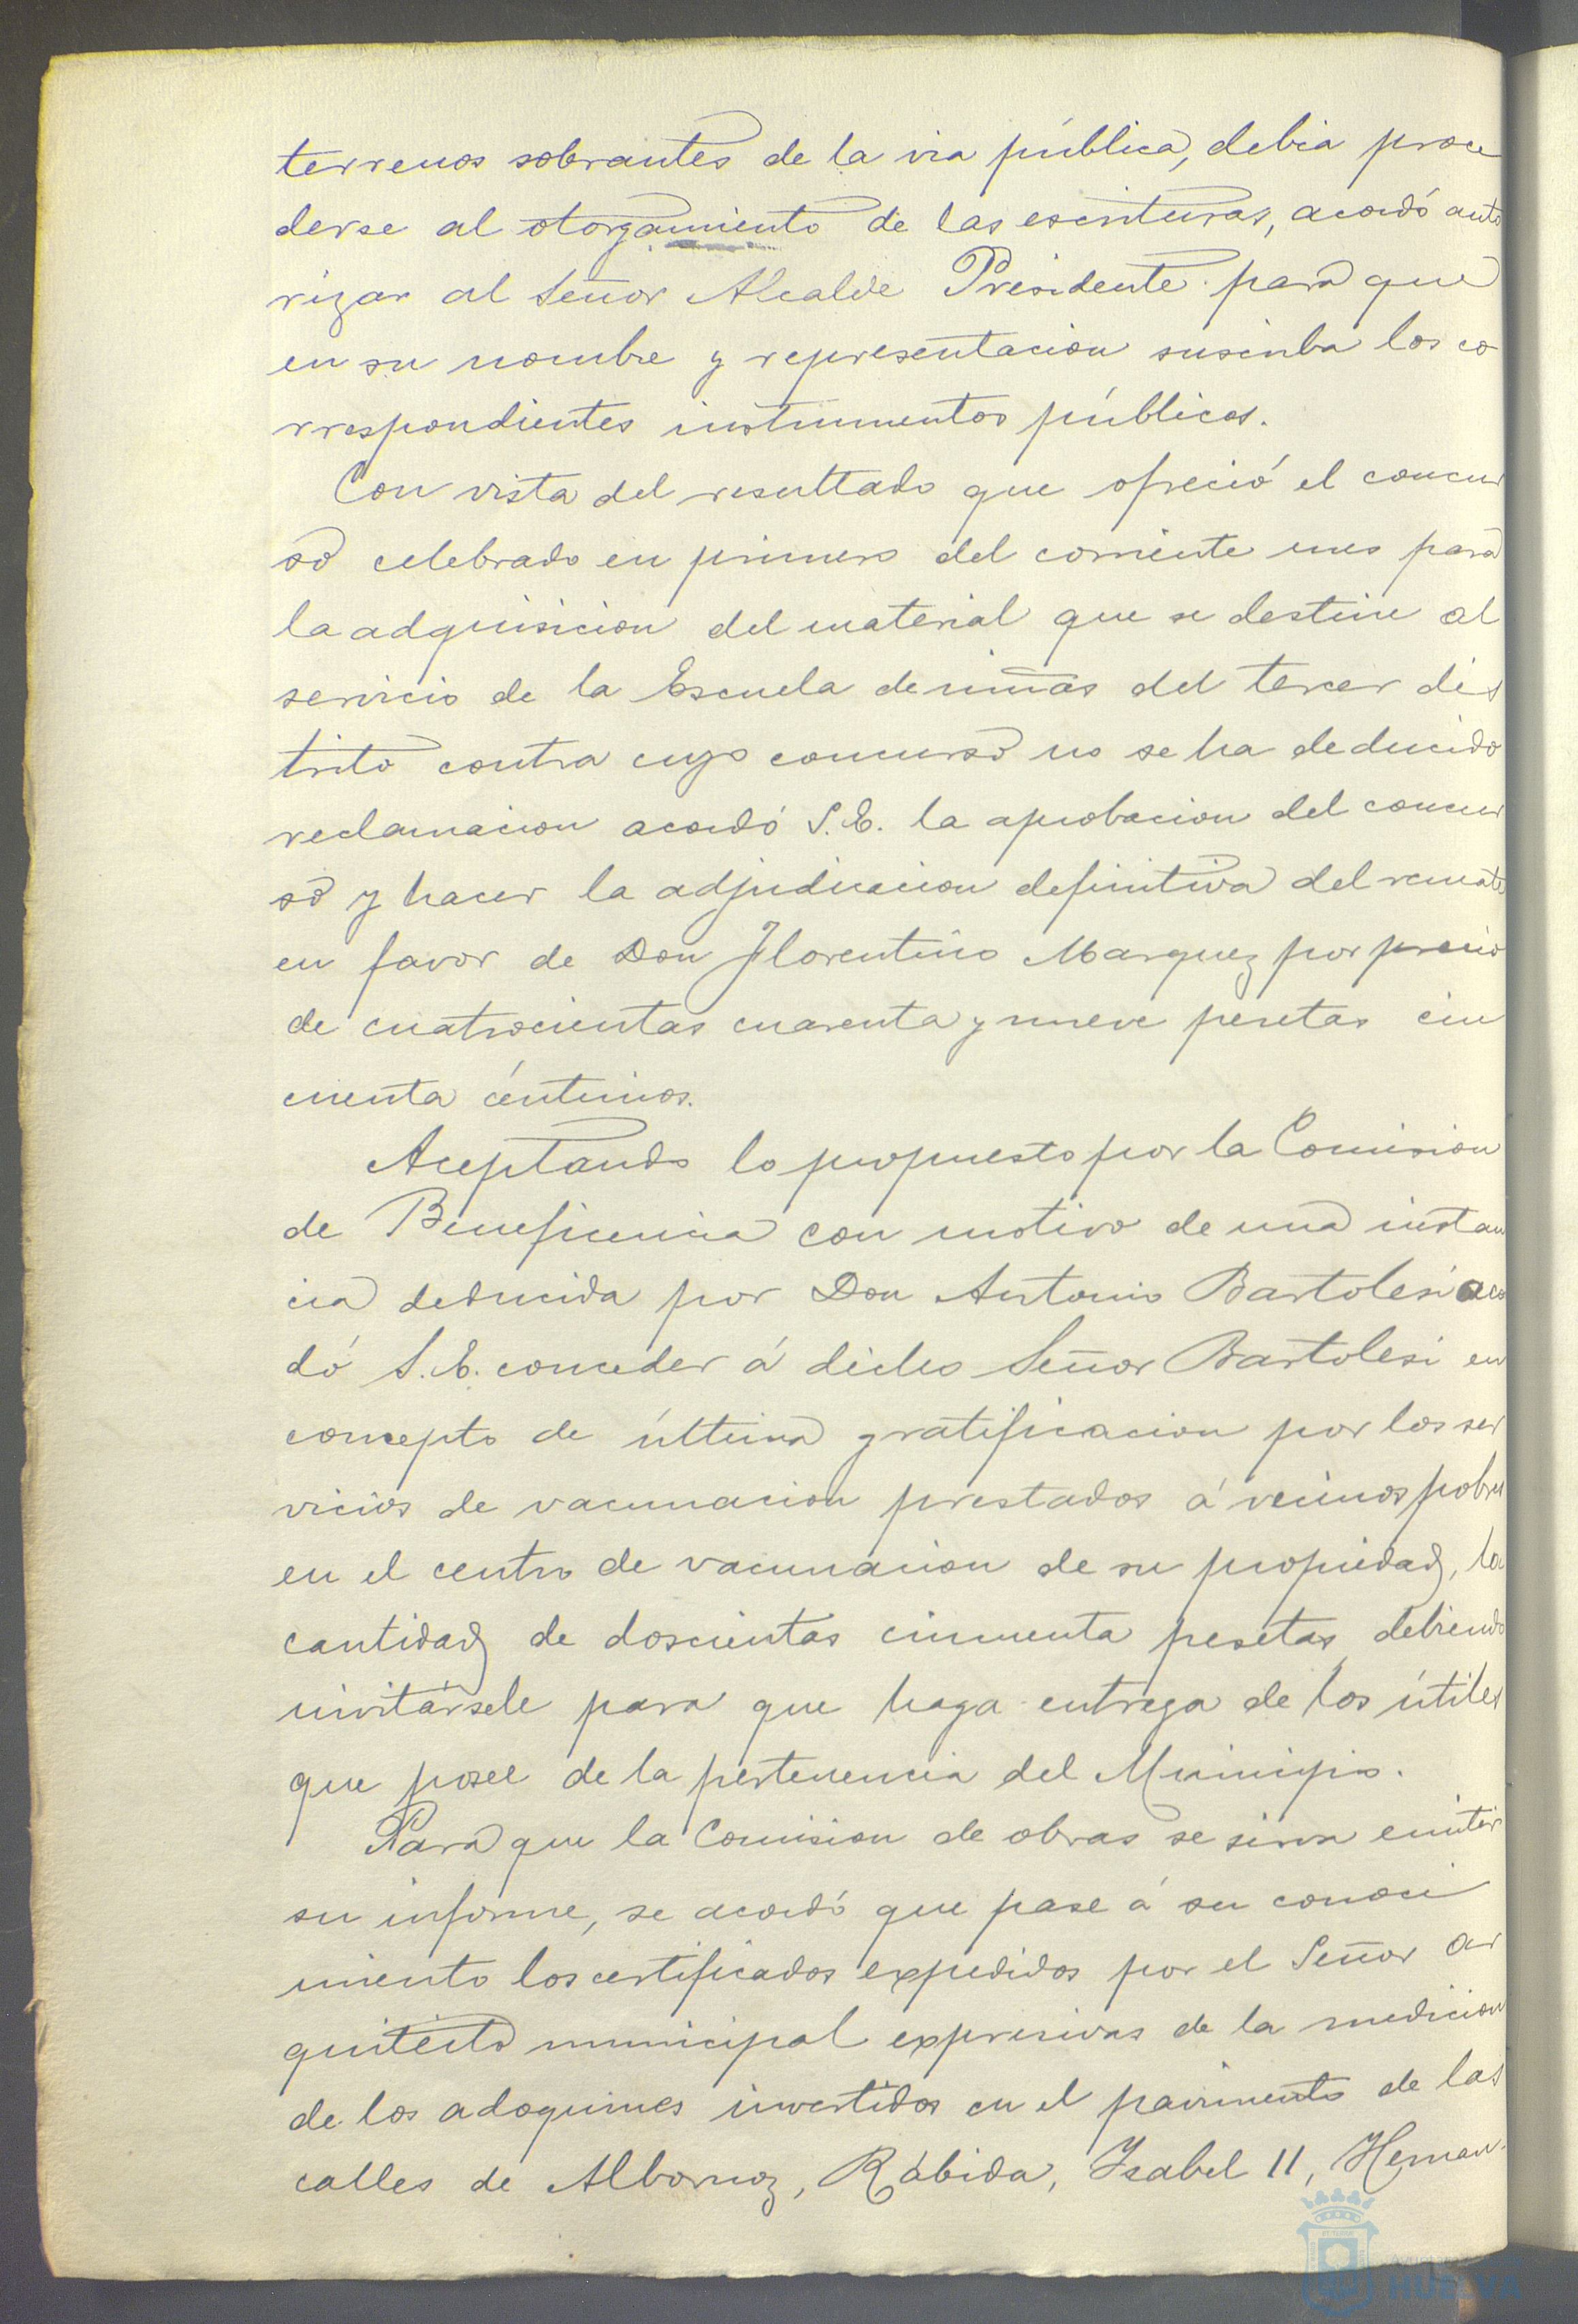 terrenos sobrantes de la via pública, debia proce
derse al otorgamiento de las escrituras, acordó auto
rizar al Señor Alcalde Presidente para que
en su nombre y representacion suscriba los co
rrespondientes instrumentos públicos.
Con vista del resultado que ofreció el concur
so celebrado en primero del corriente mes para
la adquisicion del material que se destine al
servicio de la Escuela de niñas del tercer dis
trito contra cuyo concurso no se ha deducido
reclamacion acordó S.E. la aprobacion del concur
so y hacer la adjudicacion definitiva del remate
en favor de Don Florentino Marquez por precio
de cuatrocientas cuarenta y nueve pesetas cin
cuenta céntimos.
Aceptando lo propuesto por la Comision
de Beneficencia con motivo de una instan
cia deducida por Don Antonio Bartolesi aco
dó S.E. conceder á dicho Señor Bartolesi en
concepto de última gratificacion por los ser
vicios de vacunacion prestados á vecinos pobres
en el centro de vacunacion de su propiedad, la
cantidad de doscientas cincuenta pesetas debiendo
invitársele para que haga entrega de los útiles
que posee de la pertenencia del Municipio.
Para que la Comision de obras se sirva emitir
su informe, se acordó que pase á su conoci
miento los certificados expedidos por el Señor ar
quitecto municipal expresivas de la medicion
de los adoquines invertidos en el pavimento de las
calles de Albornoz, Rábida, Isabel II, Hernan-
HUELVA